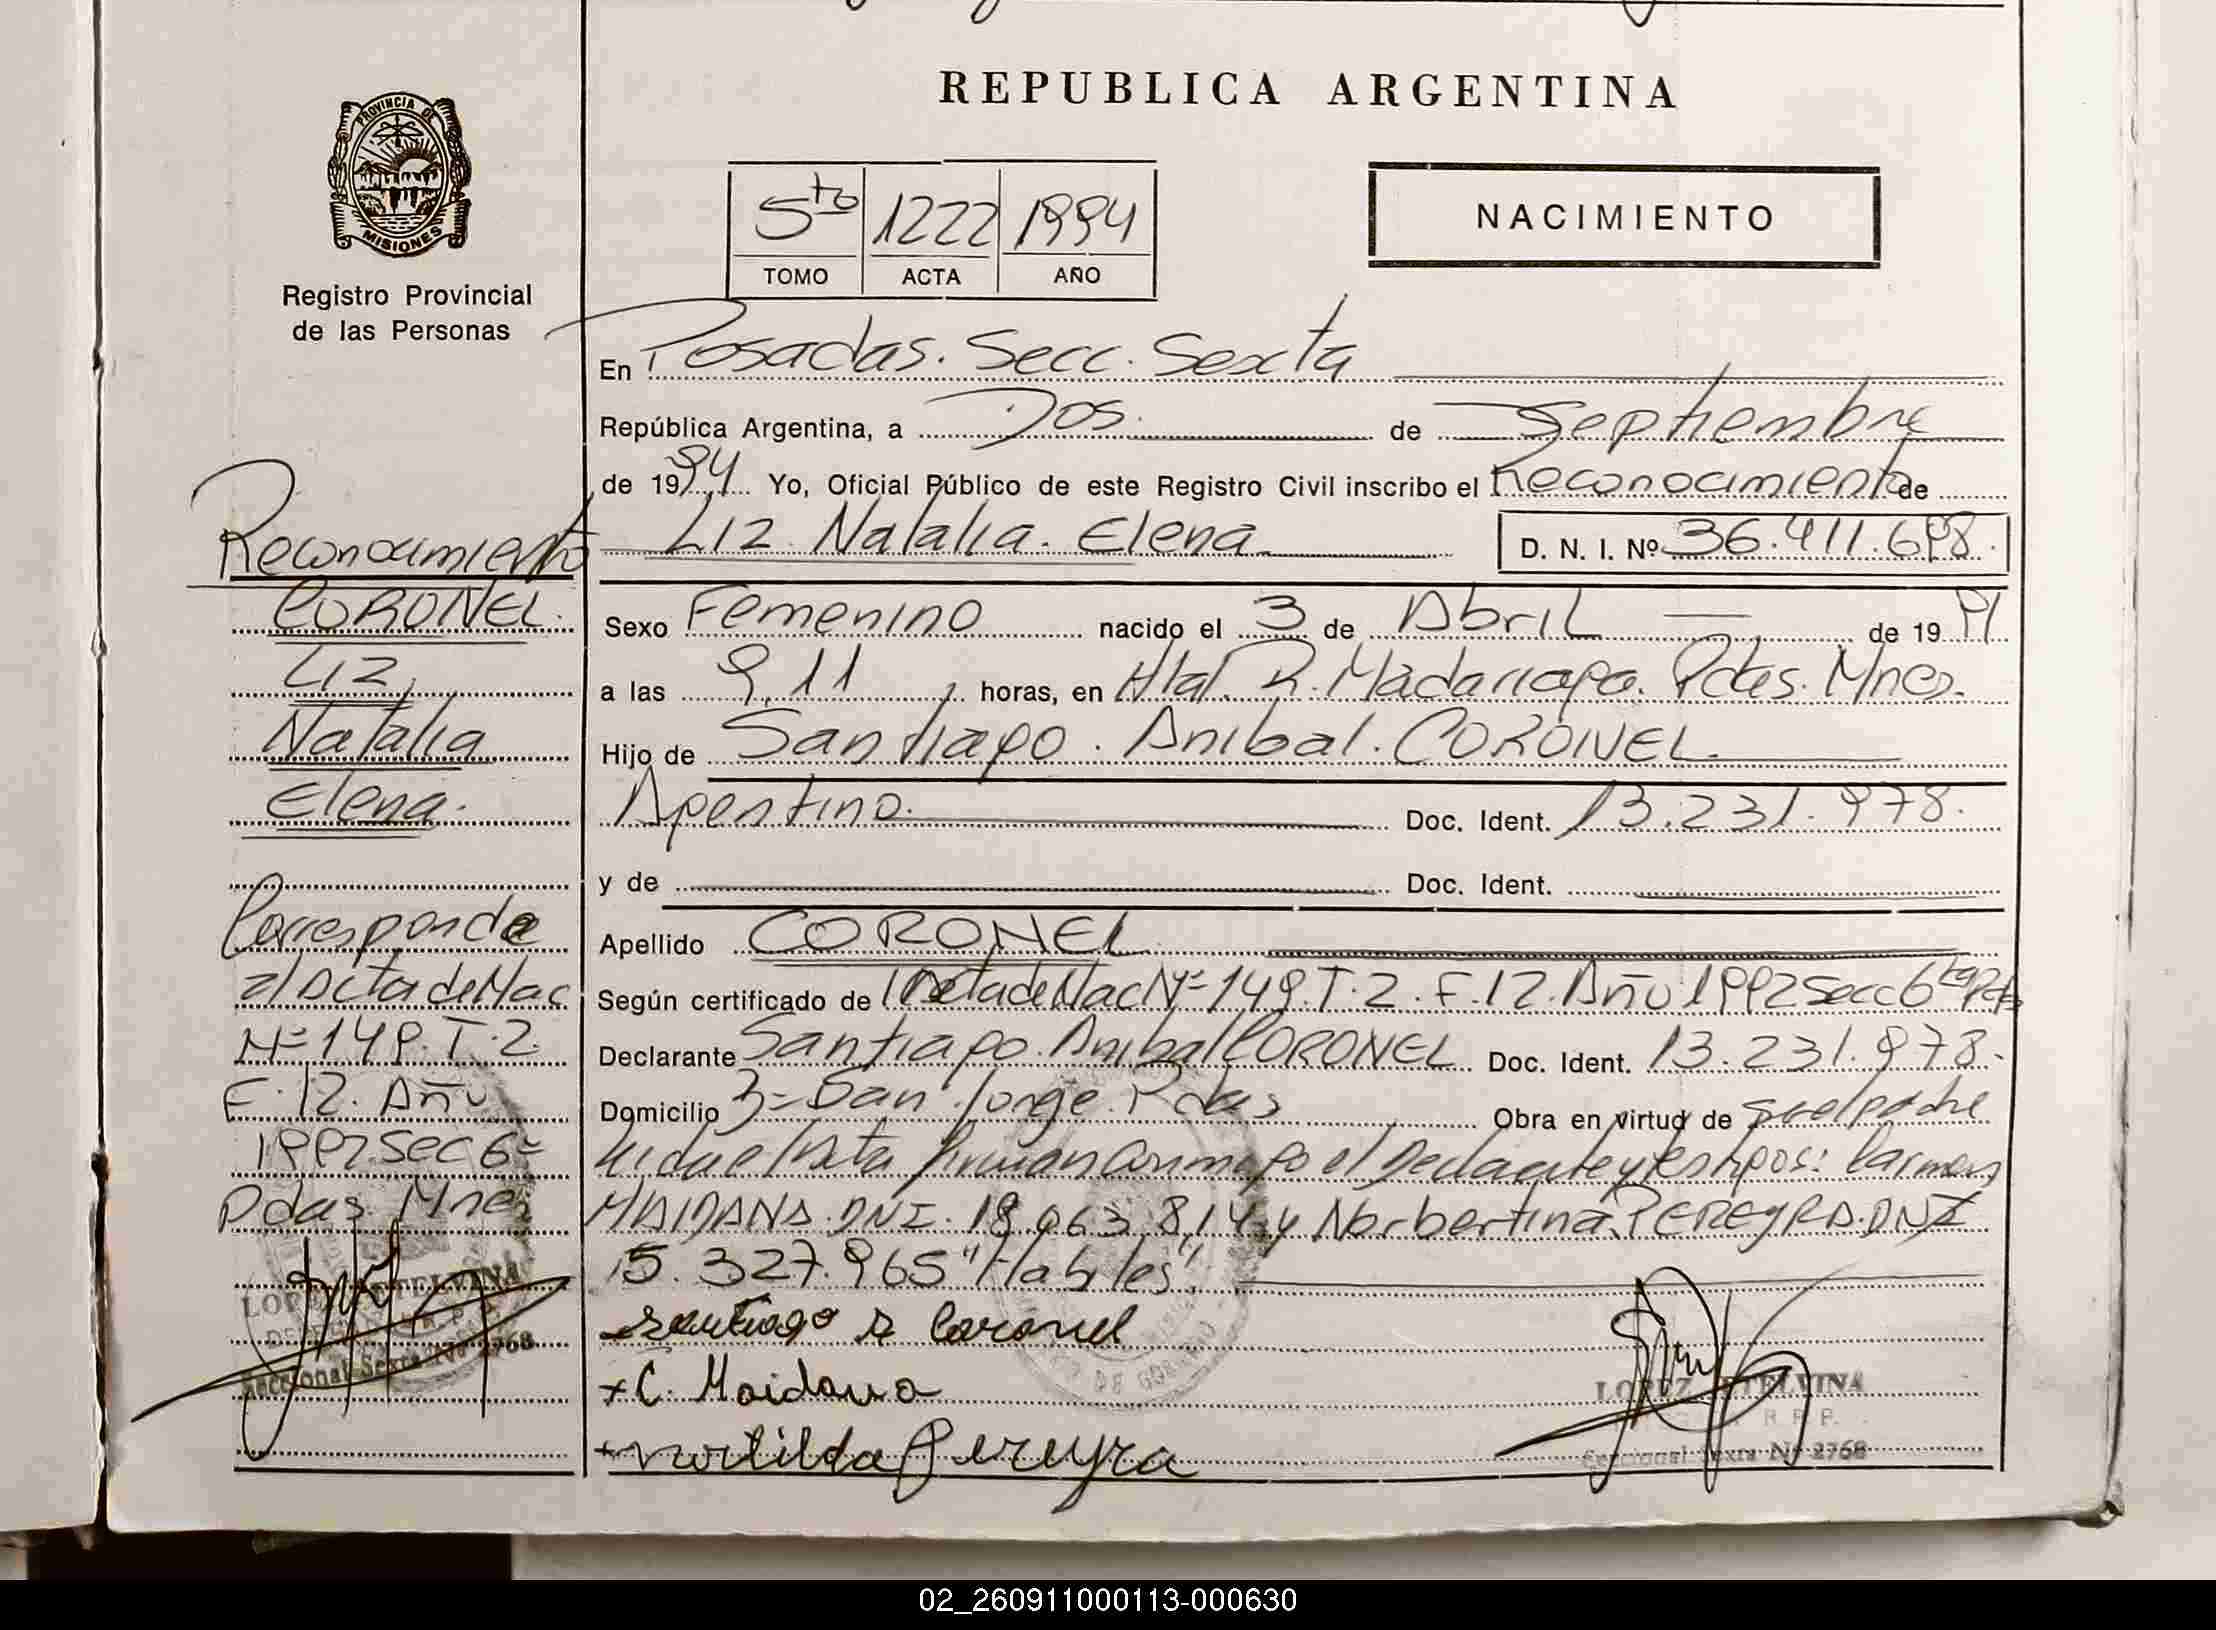 REPUBLICA ARGENTINA
PROVINCIA DE
MISIONES
Registro Provincial
de las Personas
5to 1222 1994
TOMO ACTA AÑO
NACIMIENTO
En Posadas. Secc. Sexta
República Argentina, a Dos. de Septiembre
de 1994 Yo, Oficial Público de este Registro Civil inscribo el Reconocimiento de
Liz Natalia. Elena D. N. I. Nº 36.411.698.
Sexo Femenino nacido el 3 de Abril de 1991
a las 9,11 horas, en Htal. R. Madariaga. Pdas. Mnes.
Hijo de Santiago. Anibal. CORONEL.
Argentino. Doc. Ident. 13.231.978.
y de Doc. Ident.
Apellido CORONEL
Según certificado de Acta de Nac Nº 149. T. 2. F. 12. Año 1992 Secc 6ta Pdas
Declarante Santiago. Anibal CORONEL Doc. Ident. 13.231.978.
Domicilio Bº San Jorge. Pdas Obra en virtud de ser el padre
Leida el Acta firman conmigo el Declarante y testigos: Carmen
MAIDANA. DNI. 18.063.814 y Norbertina PEREYRA. DNI
5.327.965 "Habiles".
Santiago A Coronel
+ C. Maidana
Pereyra
LOPEZ ETELVINA
R. P. P.
Seccional Sexta Nº 2768
Reconocimiento
CORONEL.
Liz
Natalia
Elena.
Corresponde
al Acta de Nac
Nº 149. T. 2.
F. 12. Año
1992. Sec 6ª
Pdas. Mnes
LOPEZ ETELVINA
Seccional Sexta Nº 2768
02_260911000113-000630